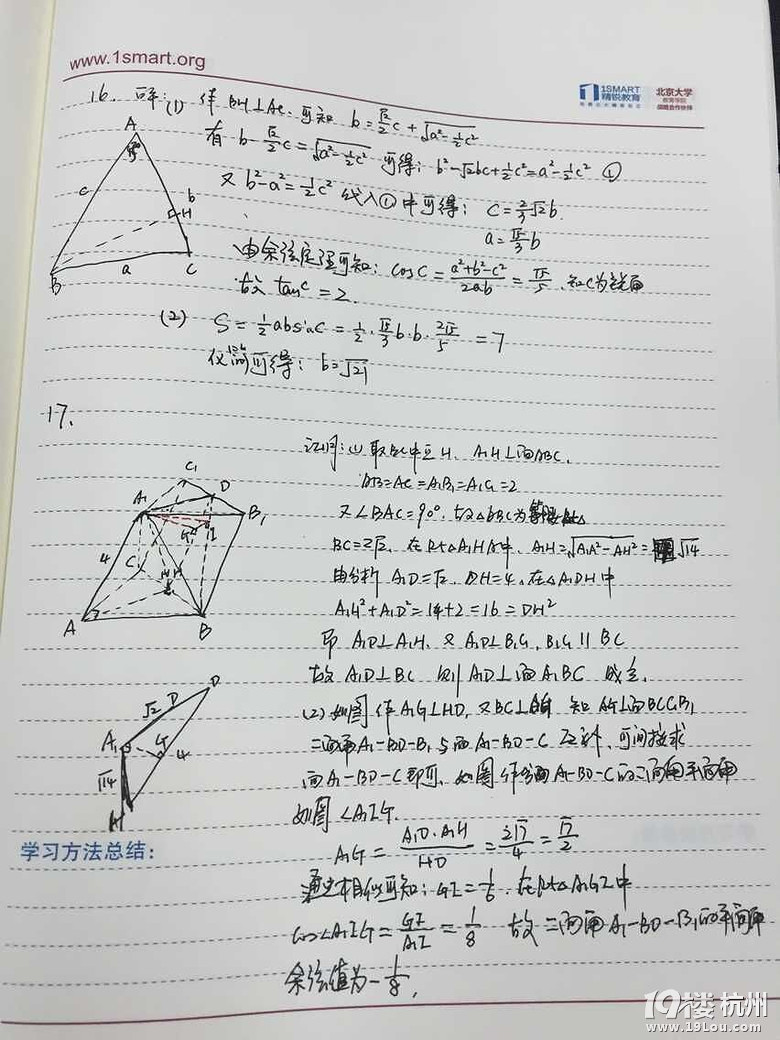 www.1smart.org
1SMART
精锐教育
北京大学
教育学院
战略合作伙伴
16. 解:(1) 作BH⊥AC. 可知 b=√2/2c+√(a²-1/2c²)
有 b-√2/2c=√(a²-1/2c²) 可得: b²-√2bc+1/2c²=a²-1/2c² ①
又 b²-a²=1/2c² 代入①中可得: c=2/3√2b.
a=√5/3b
由余弦定理可知: cosC=(a²+b²-c²)/2ab=√5/5. 知C为锐角
故 tanC=2.
(2) S=1/2absinC=1/2·√5/3b·b·2√5/5=7
化简可得: b=√21
A
c
b
H
B
a
C
17.
证明:(1) 取BC中点H. A₁H⊥面ABC.
AB=AC=A₁B₁=A₁C₁=2
又∠BAC=90°. 故△ABC为等腰Rt△
BC=2√2. 在Rt△A₁HA中. A₁H=√(A₁A²-AH²)=√14
由分析 A₁D=√2. DH=4. 在△A₁DH中
A₁H²+A₁D²=14+2=16=DH²
即 A₁D⊥A₁H. 又A₁D⊥B₁C₁. B₁C₁∥BC
故A₁D⊥BC 则A₁D⊥面A₁BC 成立.
(2) 如图 作A₁G⊥HD. 又BC⊥ 知 A₁G⊥面BCC₁B₁
二面角A₁-BD-B₁与面A₁-BD-C互补. 可间接求
面A₁-BD-C即可. 如图作 面A₁-BD-C的二面角平面角
如图 ∠A₁IG.
A₁G=A₁D·A₁H/HD=2√7/4=√7/2
通过相似可知: GI=1/6. 在Rt△A₁GI中
cos∠A₁IG=GI/A₁I=1/8 故二面角A₁-BD-B₁的平面角
余弦值为-1/8.
C₁
A₁
D
B₁
G
I
4
C
H
A
B
√2
D
A₁
G
4
√14
H
学习方法总结:
19楼 杭州
www.19lou.com